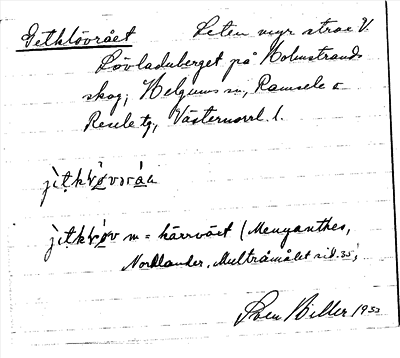 Getklövrået Liten myr strax V.
Lövladuberget på Holmstrands
skog, Helgums sn, Ramsele o.
Resele tg, Västernorrl. l.
jìtkløvråa
jìtkløv m = kärrväxt (Menyanthes,
Nordlander, Multråmålet sid. 35)
Sven Biller 1933